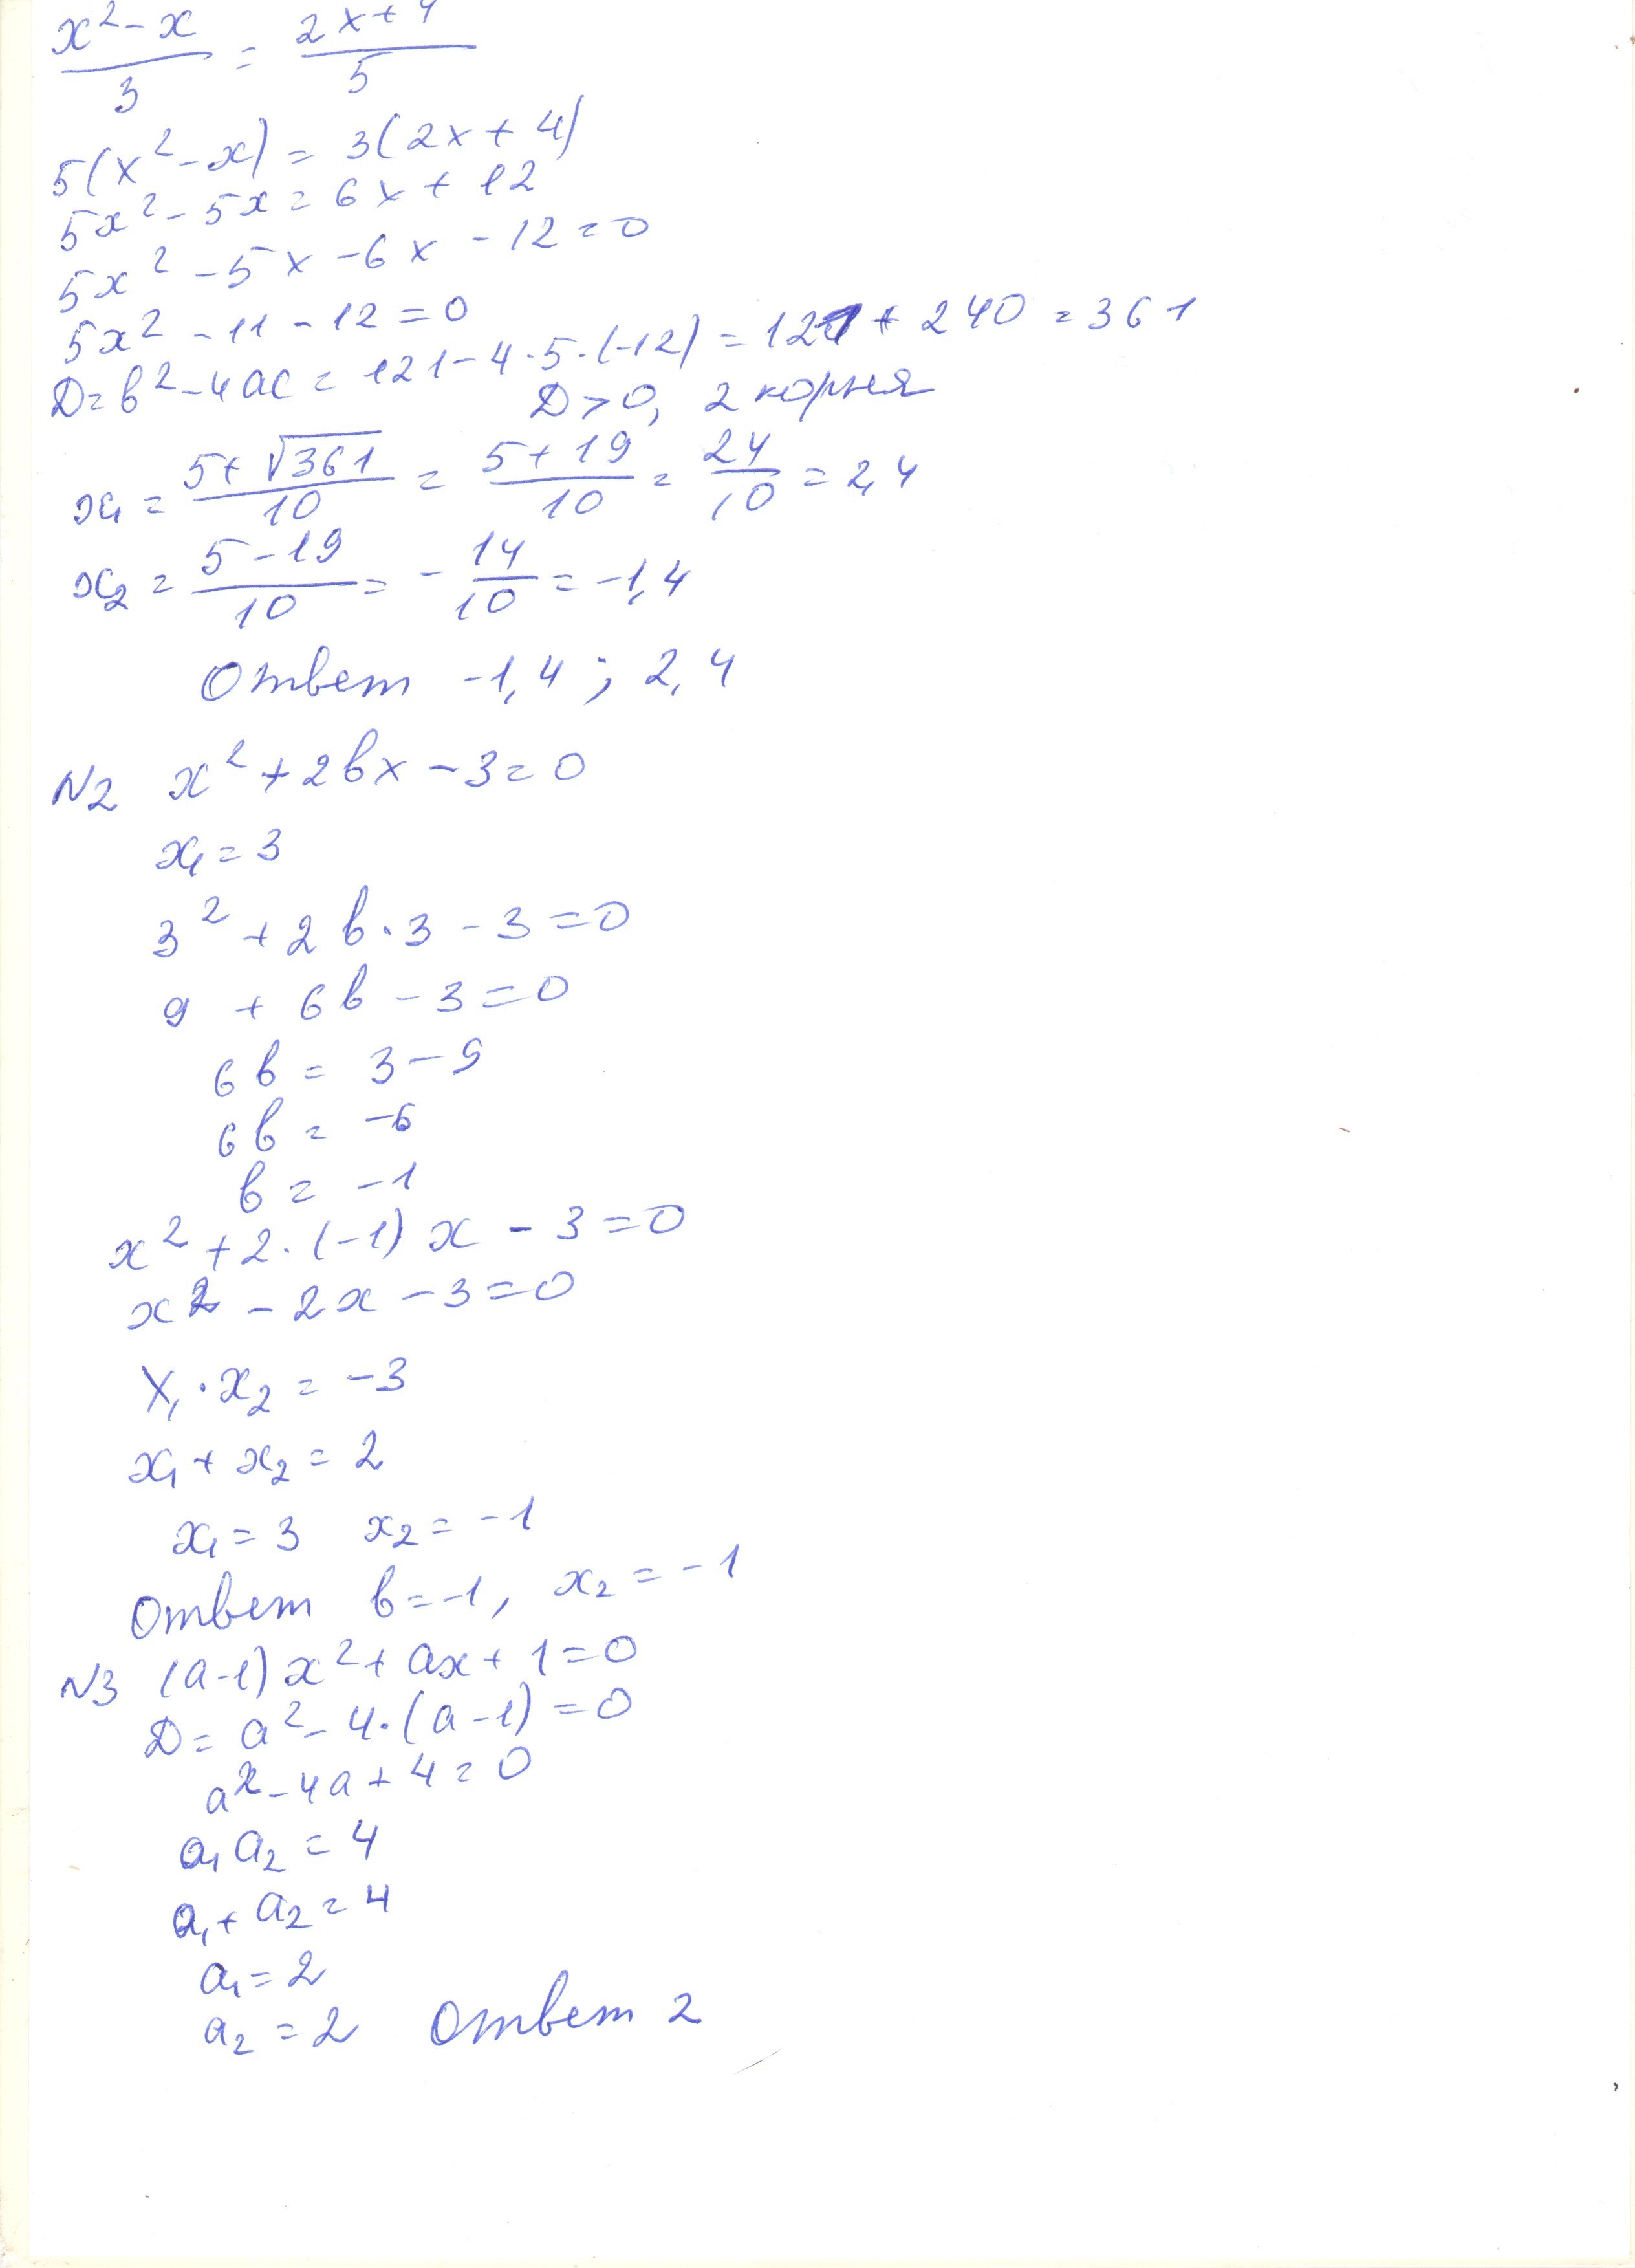 x² - x / 3 = 2x + 4 / 5
5(x² - x) = 3(2x + 4)
5x² - 5x = 6x + 12
5x² - 5x - 6x - 12 = 0
5x² - 11 - 12 = 0
D = b² - 4ac = 121 - 4·5·(-12) = 121 + 240 = 361
D > 0, 2 корня
x₁ = 5 + √361 / 10 = 5 + 19 / 10 = 24 / 10 = 2,4
x₂ = 5 - 19 / 10 = - 14 / 10 = -1,4
Ответ -1,4 ; 2,4
N2 x² + 2bx - 3 = 0
x₁ = 3
3² + 2b·3 - 3 = 0
9 + 6b - 3 = 0
6b = 3 - 9
6b = -6
b = -1
x² + 2·(-1)x - 3 = 0
x² - 2x - 3 = 0
x₁·x₂ = -3
x₁ + x₂ = 2
x₁ = 3 x₂ = -1
Ответ b = -1, x₂ = -1
N3 (a-1)x² + ax + 1 = 0
D = a² - 4·(a-1) = 0
a² - 4a + 4 = 0
a₁a₂ = 4
a₁ + a₂ = 4
a₁ = 2
a₂ = 2 Ответ 2